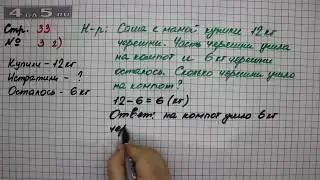 4 до 5.ru
Стр. 33
№ 3 2)
Купили - 12 кг
Истратили - ?
Осталось - 6 кг
Н-р: Саша с мамой купили 12 кг
черешни. Часть черешни ушла
на компот и 6 кг черешни
осталось. Сколько черешни ушло
на компот?
12 - 6 = 6 (кг)
Ответ: на компот ушло 6 кг
чер